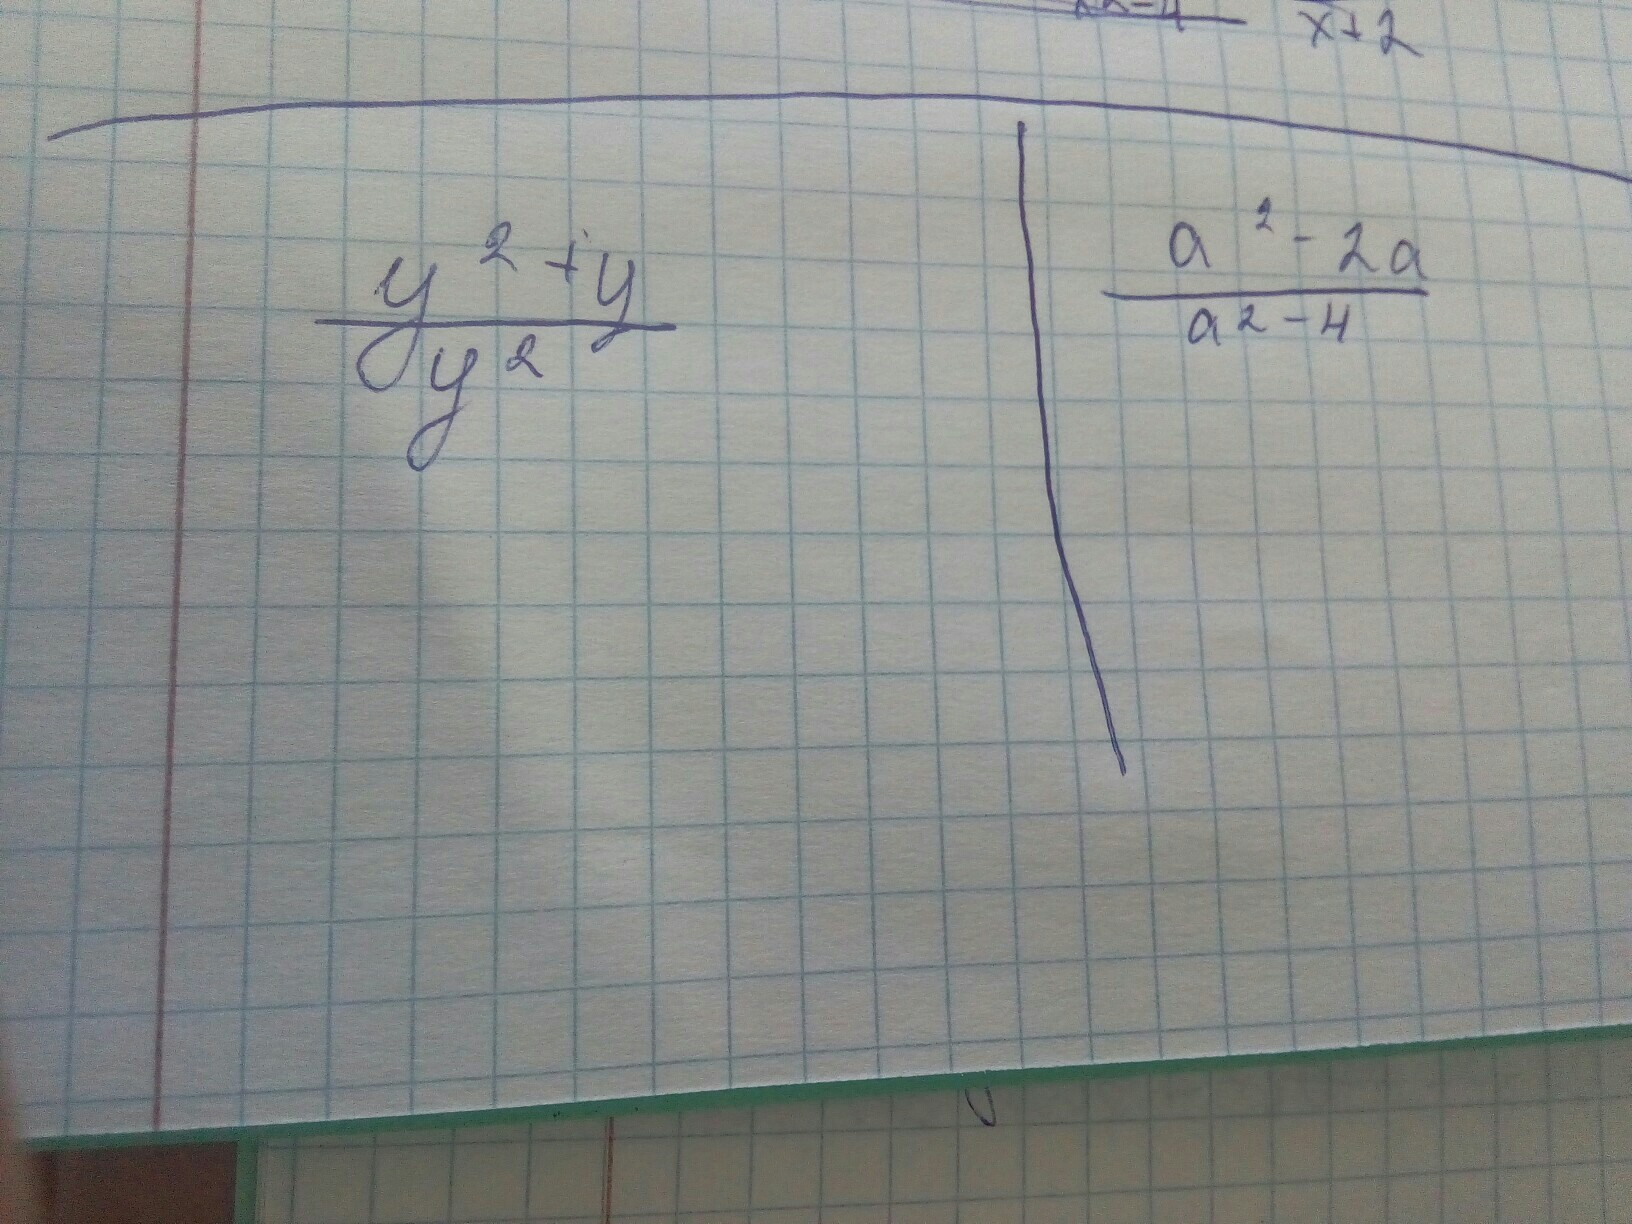 x+2
y² + y
y²
a² - 2a
a² - 4